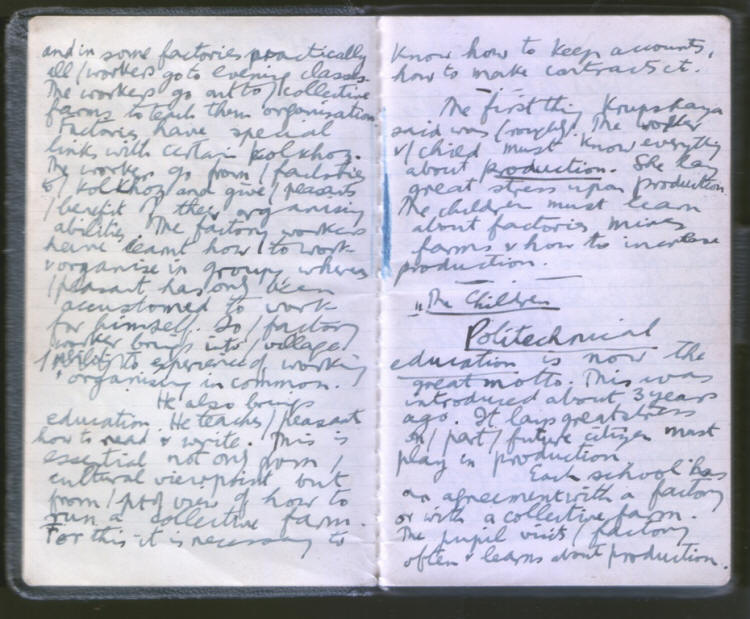 and in some factories practically
all / workers go to evening classes.
The workers go out to / collective
farms to teach them organisation
Factories have special
links with certain Kolkhoz.
The workers go from / factories
to / Kolkhoz and give / peasants
/ benefit of their organising
abilities. The factory workers
have learnt how to work
& organise in groups, whereas
/ peasant has only been
accustomed to work
for himself. So / factory
worker brings into village
/ ability & experience of working
& organising in common.
He also brings
education. He teaches / peasant
how to read & write. This is
essential not only from /
cultural viewpoint but
from / pt of view of how to
run a collective farm.
For this it is necessary to
Know how to keep accounts,
how to make contracts etc.
The first thing Krupskaya
said was (roughly) The worker
& / child must know everything
about production. She lay
great stress upon production.
The children must learn
about factories mines
farms & how to increase
production.
"The Children
Politechnical
education is now the
great motto. This was
introduced about 3 years
ago. It lays great stress
on / part / future citizen must
play in production
Each school has
an agreement with a factory
or with a collective farm.
The pupil visits / factory
often & learns about production.